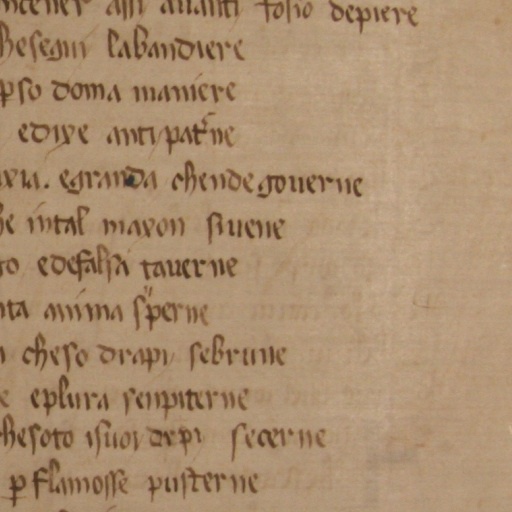 assi auanti depiere
hesegui labandiere
pso doma maniere
edixe anti patrne
egranda chende gouerne
intal maxon siuene
to edefalsa tauerne
nta anima sperne
cheso drapi sebrune
e eplura senpiterne
hesoto isuoi drpi secerne
p flamosse pusterne